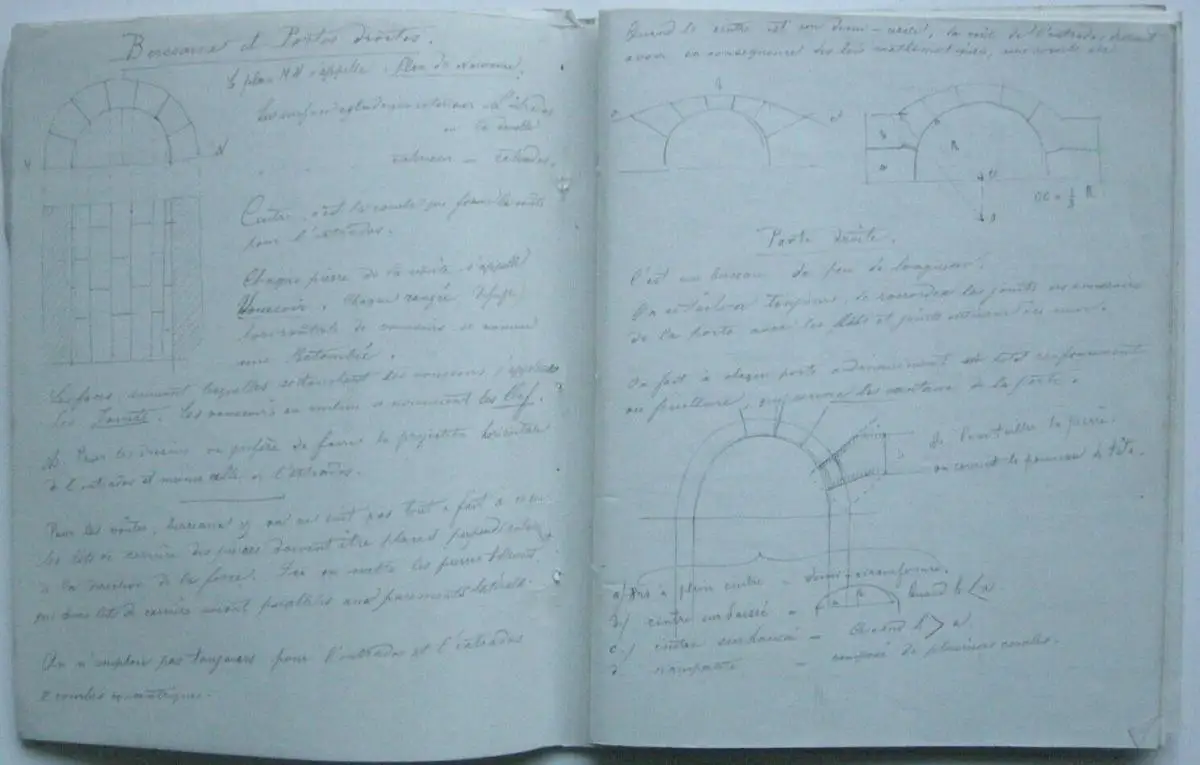 Berceaux et Portes droites.
Le plan MN s'appelle Plan de naissance.
La surface cylindrique intérieure = l'intrados
ou la douelle
extérieur = extrados.
Cintre, c'est la courbe que forme la voûte
pour l'intrados.
Chaque pierre de la voûte s'appelle
Voussoir. Chaque rangée
horizontale de voussoirs se nomme
une Retombée.
Les faces suivant lesquelles se touchent les voussoirs s'appellent
les Joints. Les voussoirs au milieu se nomment les Clef.
Pour les dessins on préfère de faire la projection horizontale
de l'intrados et non celle de l'extrados.
Pour les voûtes, berceaux on ne suit pas tout à fait
les lits de carrière des pierres doivent être placés perpendiculaires
à la direction de la force. Ici on mettra les pierres
que leurs lits de carrière soient parallèles aux parements latérals.
On n'emploie pas toujours pour l'intrados et l'extrados
2 courbes
M
N
Quand le cintre est un demi-cercle, la voûte de l'extrados devrait
avoir en conséquence des lois mathématiques, une courbe
R
O
OO = 1/3 R
Porte droite.
C'est un berceau de peu de longueur.
On est tâché toujours de raccorder les joints des voussoirs
de la porte avec les lits et joints du mur.
On fait à chaque porte ordinairement un petit renfoncement
ou feuillure, qui reçoive les vantaux de la porte.
la pierre
on connaît le panneau de tête.
a) Arc à plein cintre = demi-circonférence.
b) cintre surbaissé = Quand b < a
c.) cintre surhaussé = Quand b > a.
d rampante = composé de plusieurs courbes.